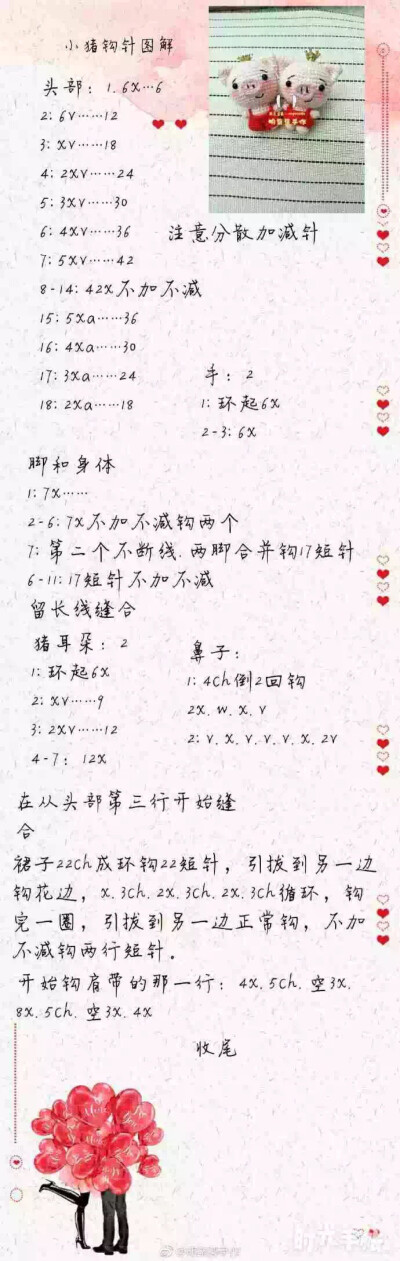 小猪钩针图解
头部：1.6X…6
2：6V……12
3：XV……18
4：2XV……24
5：3XV……30
6：4XV……36
注意分散加减针
7：5XV……42
8-14：42X不加不减
15：5Xa……36
16：4Xa……30
17：3Xa……24
18：2Xa……18
手：2
1：环起6X
2-3：6X
脚和身体
1：7X……
2-6：7X不加不减钩两个
7：第二个不断线.两脚合并钩17短针
6-11：17短针不加不减
留长线缝合
猪耳朵：2
1：环起6X
2：XV……9
3：2XV……12
4-7：12X
鼻子：
1：4Ch倒2回钩
2X.W.X.V
2：V.X.V.V.V.X.2V
在从头部第三行开始缝
合
裙子22Ch成环钩22短针，引拔到另一边
钩花边，X.3Ch.2X.3Ch.2X.3Ch循环，钩
完一圈，引拔到另一边正常钩，不加
不减钩两行短针。
开始钩肩带的那一行：4X.5Ch.空3X.
8X.5Ch.空3X.4X
收尾